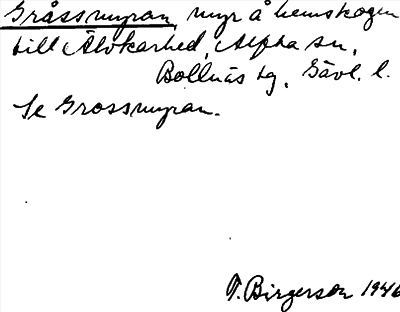 Gråssmyran, myr å hemskogen
till Älvkarhed, Alfta sn,
Bollnäs tg, Gävl. l.
Se Grossmyran.
T. Birgerson 1946